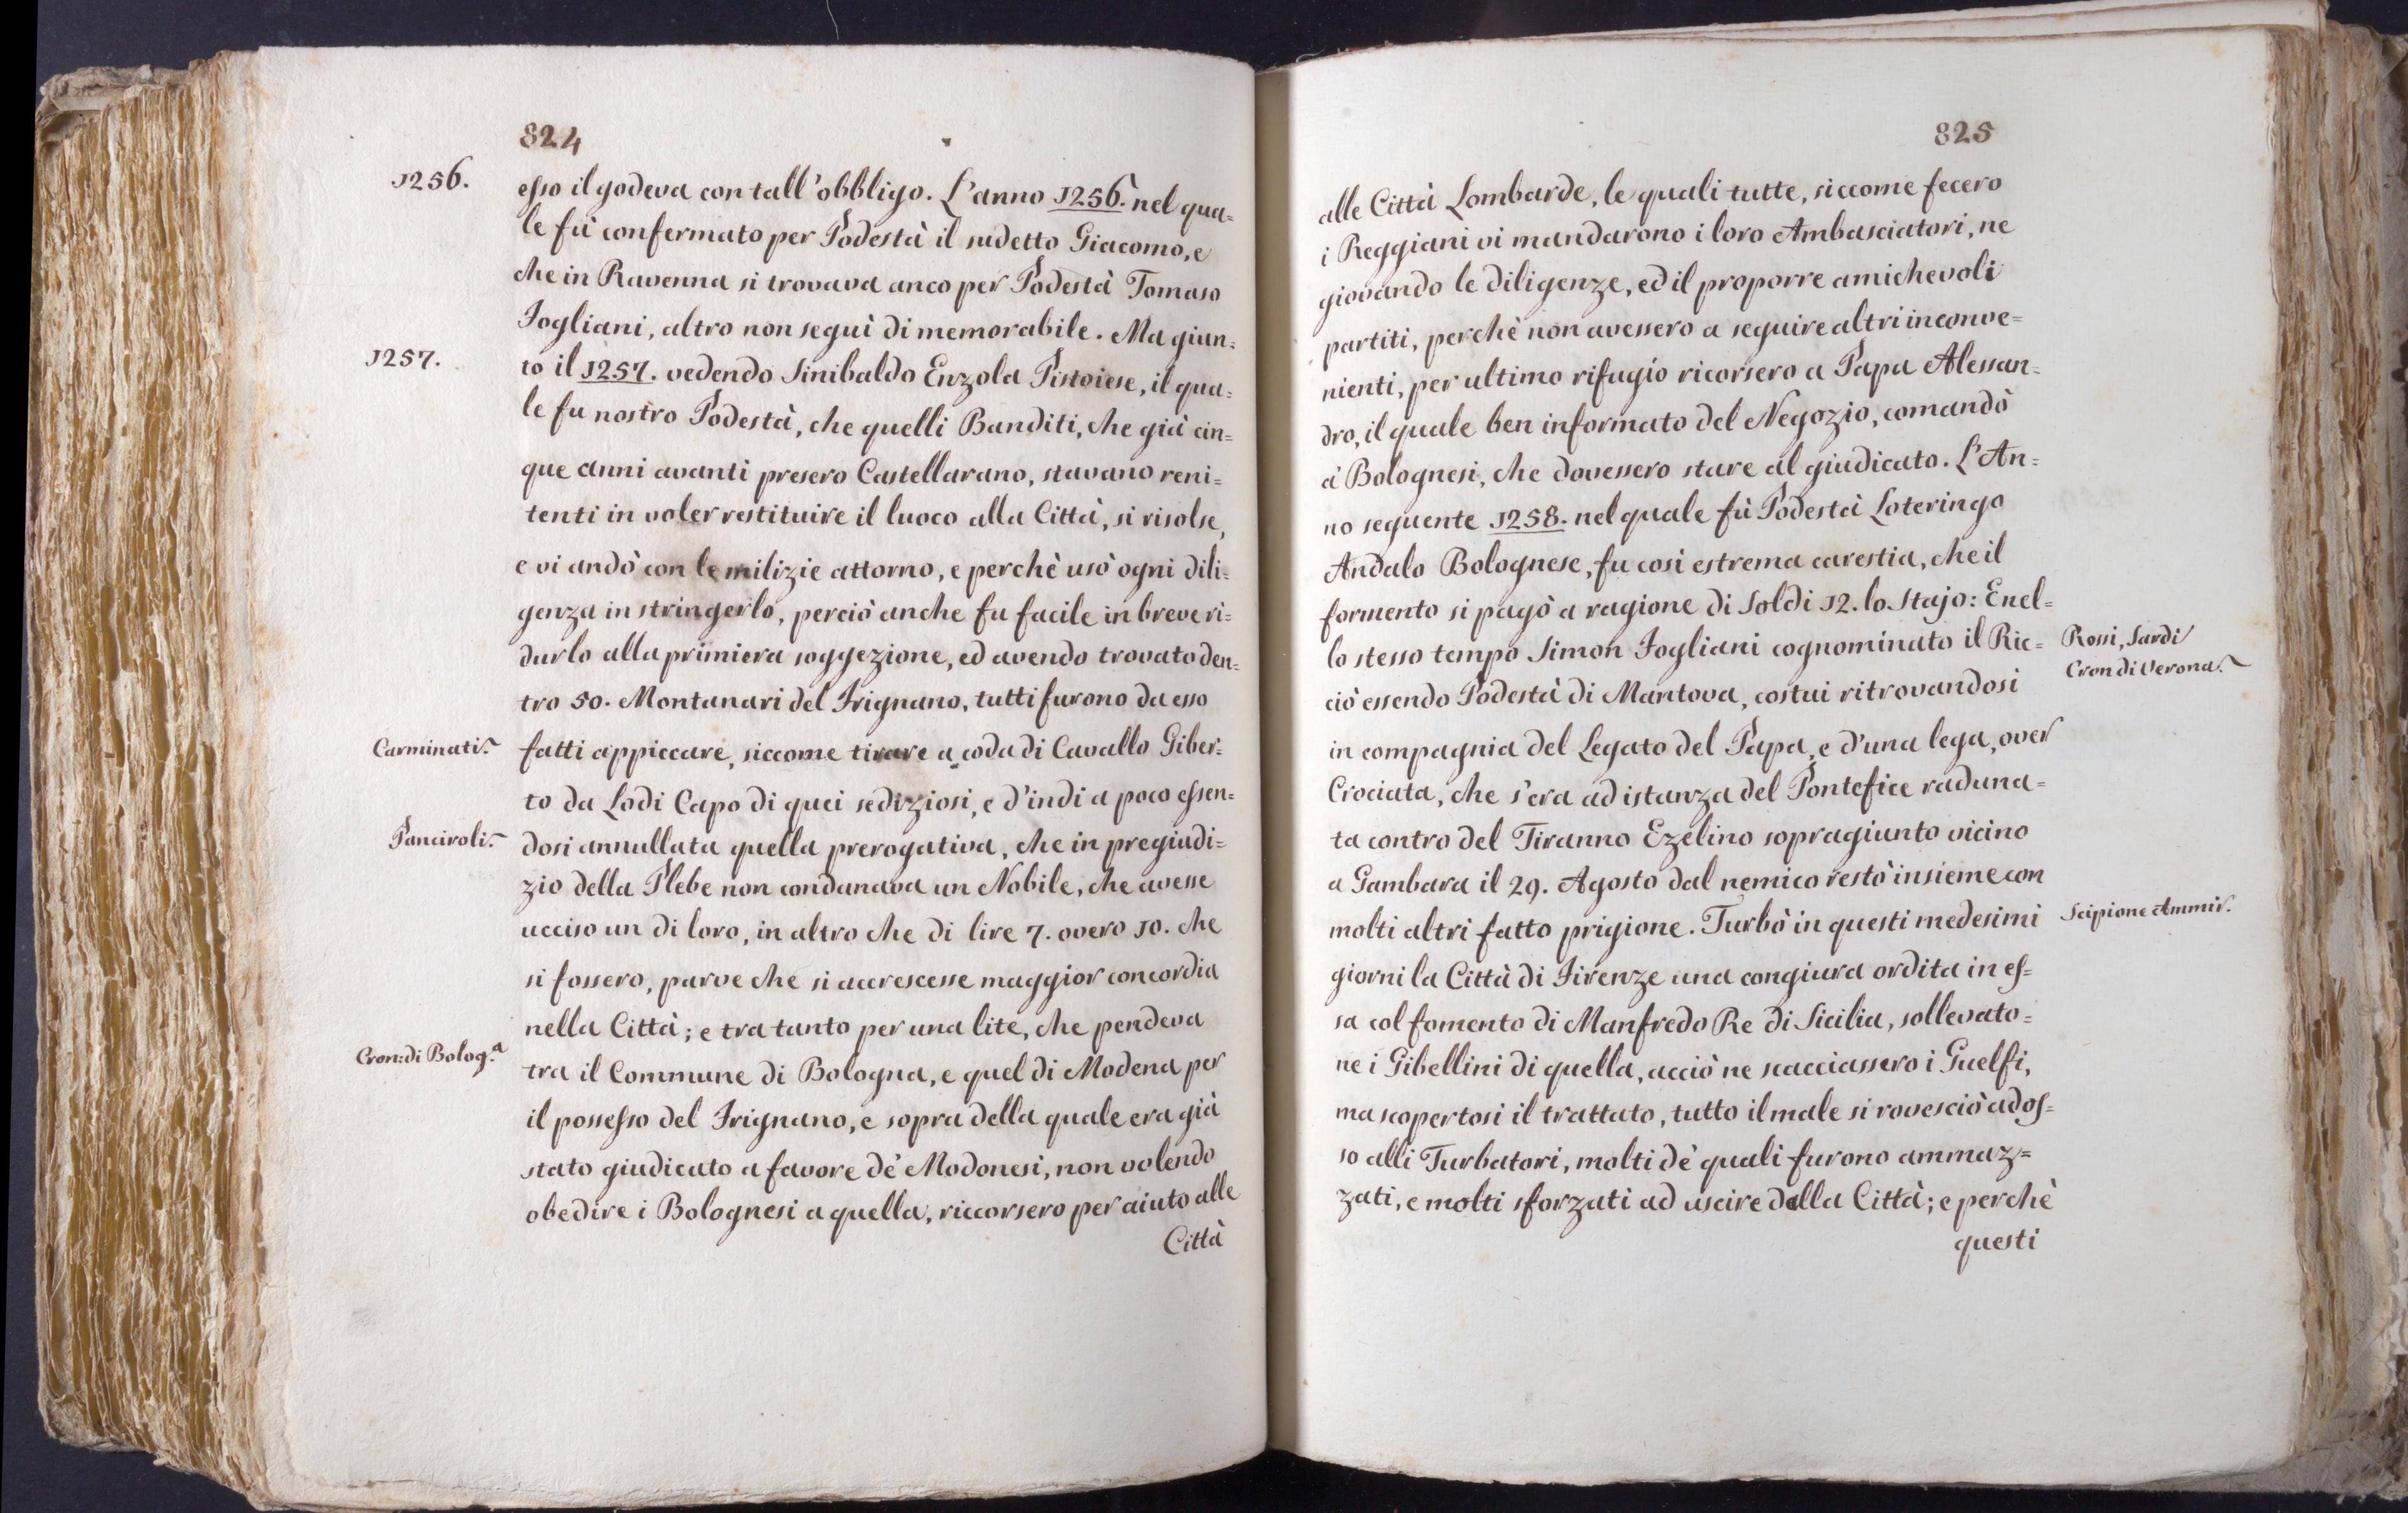 824
1256.
esso il godeva con tall'obbligo. L'anno 1256. nel qua=
le fù confermato per Podestà il sudetto Giacomo, e
che in Ravenna si trovava anco per Podestà Tomaso
Fogliani, altro non seguì di memorabile. Ma giun=
1257.
to il 1257. vedendo Sinibaldo Enzola Pistoiese, il qua=
le fu nostro Podestà, che quelli Banditi, che già cin=
que anni avanti presero Castellarano, stavano reni=
tenti in voler restituire il luoco alla Città, si risolse,
e vi andò con le milizie attorno, e perchè usò ogni dili=
genza in stringerlo, perciò anche fu facile in breve ri=
durlo alla primiera soggezione, ed avendo trovato den=
tro 50. Montanari del Frignano, tutti furono da esso
Carminati.
fatti appiccare, siccome tirare a coda di Cavallo Giber=
to da Lodi Capo di quei sediziosi, e d'indi a poco essen=
Panciroli.
dosi annullata quella prerogativa, che in pregiudi=
zio della Plebe non condanava un Nobile, che avesse
ucciso un di loro, in altro che di lire 7. overo 10. che
si fossero, parve che si accrescesse maggior concordia
nella Città; e tra tanto per una lite, che pendeva
Cron: di Bolog.a
tra il Commune di Bologna, e quel di Modena per
il possesso del Frignano, e sopra della quale era già
stato giudicato a favore de' Modonesi, non volendo
obedire i Bolognesi a quella, riccorsero per aiuto alle
Città
825
alle Città Lombarde, le quali tutte, siccome fecero
i Reggiani vi mandarono i loro Ambasciatori, ne
giovando le diligenze, ed il proporre amichevoli
partiti, perchè non avessero a seguire altri inconve=
nienti, per ultimo rifugio ricorsero a Papa Alessan=
dro, il quale ben informato del Negozio, comandò
a' Bolognesi, che dovessero stare al giudicato. L'An=
no seguente 1258. nel quale fù Podestà Loteringo
Andalo Bolognese, fu così estrema carestia, che il
formento si pagò a ragione di Soldi 12. lo Stajo: E nel=
lo stesso tempo Simon Fogliani cognominato il Ric=
Rossi, Sardi
Cron di Verona.
ciò essendo Podestà di Mantova, costui ritrovandosi
in compagnia del Legato del Papa, e d'una lega, over
Crociata, che s'era ad istanza del Pontefice raduna=
ta contro del Tiranno Ezelino sopragiunto vicino
a Gambara il 29. Agosto dal nemico restò insieme con
molti altri fatto prigione. Turbò in questi medesimi
Scipione Ammir.
giorni la Città di Firenze una congiura ordita in es=
sa col fomento di Manfredo Re di Sicilia, sollevato=
ne i Gibellini di quella, acciò ne scacciassero i Guelfi,
ma scopertosi il trattato, tutto il male si rovesciò ados=
so alli Turbatori, molti de' quali furono ammaz=
zati, e molti sforzati ad uscire dalla Città; e perchè
questi